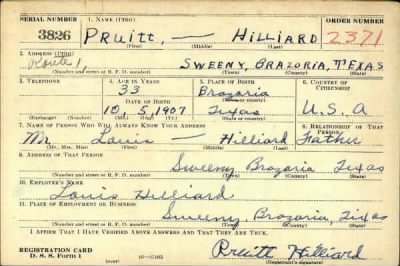 SERIAL NUMBER 1. NAME (Print) ORDER NUMBER
3826 PRUITT, — HILLIARD 2371
(First) (Middle) (Last)
2. ADDRESS (Print)
Route 1, SWEENY, BRAZORIA, TEXAS
(Number and street or R. F. D. number) (Town) (County) (State)
3. TELEPHONE 4. AGE IN YEARS 5. PLACE OF BIRTH 6. COUNTRY OF CITIZENSHIP
33 Brazoria
DATE OF BIRTH (Town or county)
10, 5, 1907 Texas U.S.A
(Exchange) (Number) (Mo.) (Day) (Yr.) (State or country)
7. NAME OF PERSON WHO WILL ALWAYS KNOW YOUR ADDRESS 8. RELATIONSHIP OF THAT PERSON
Mr Louis — Hilliard Father
(Mr., Mrs., Miss) (First) (Middle) (Last)
9. ADDRESS OF THAT PERSON
Sweeny Brazoria Texas
(Number and street or R. F. D. number) (Town) (County) (State)
10. EMPLOYER'S NAME
Louis Hilliard
11. PLACE OF EMPLOYMENT OR BUSINESS
Sweeny, Brazoria, Texas
(Number and street or R. F. D. number) (Town) (County) (State)
I AFFIRM THAT I HAVE VERIFIED ABOVE ANSWERS AND THAT THEY ARE TRUE.
REGISTRATION CARD Pruitt Hilliard
D. S. S. FORM 1 (over) (Registrant's signature)